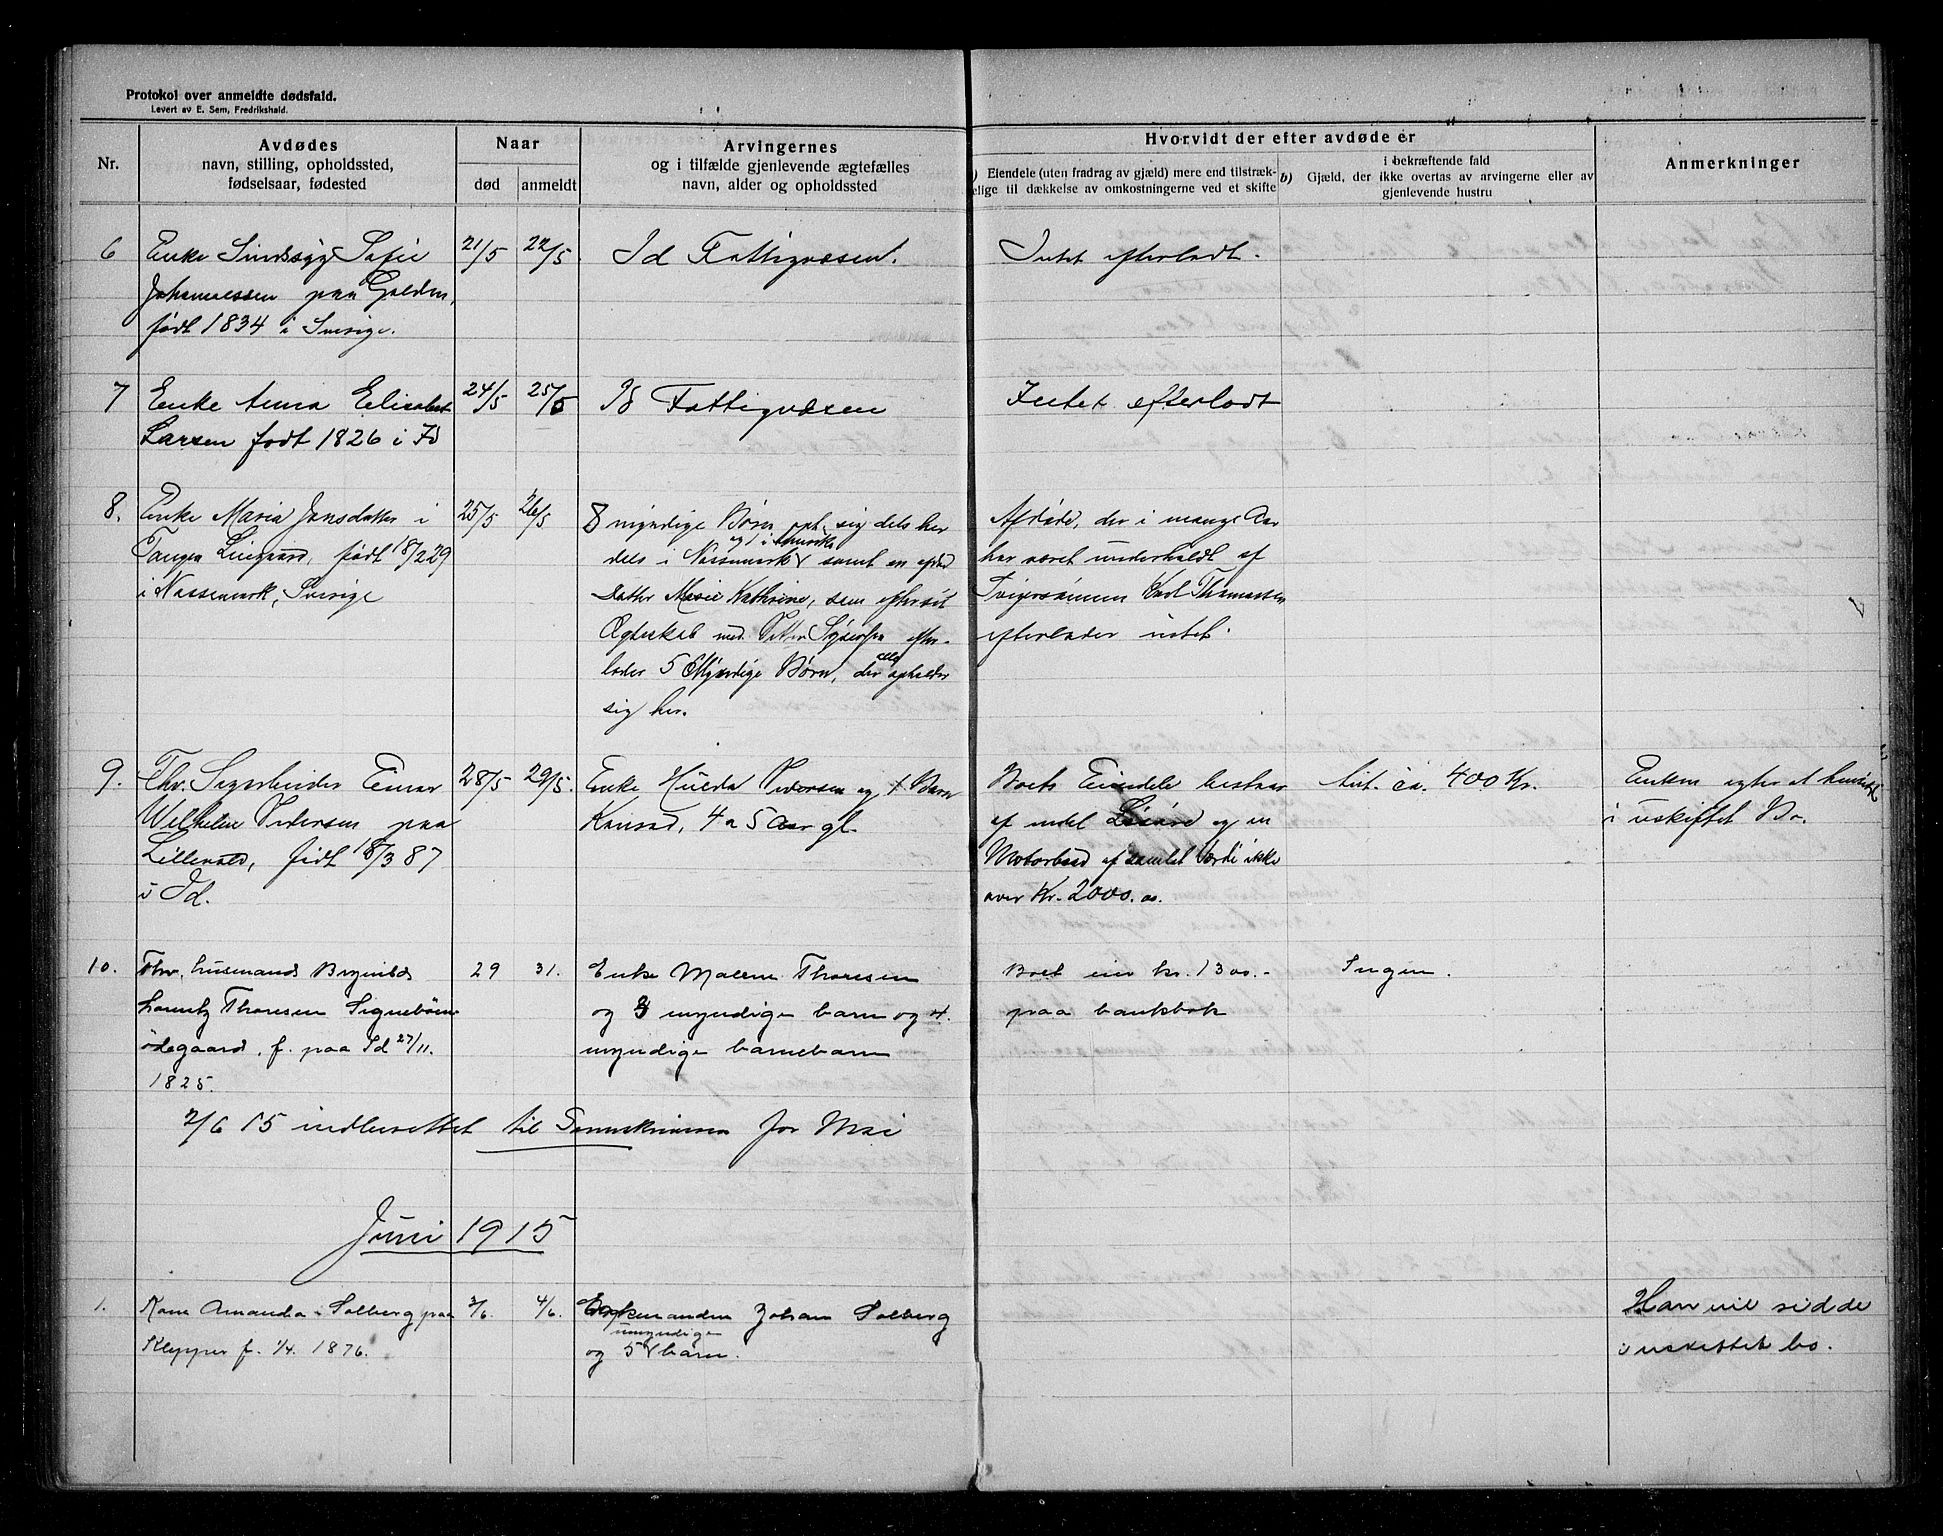 Protokol over anmeldte dødsfald.
Levert av E. Sem, Fredrikshald.
Nr.
Avdødes
navn, stilling, opholdssted,
fødselsaar, fødested
Naar
død
anmeldt
Arvingernes
og i tilfælde gjenlevende ægtefælles
navn, alder og opholdssted
Hvorvidt der efter avdøde er
a) Eiendele (uten fradrag av gjæld) mere end tilstræk-
kelige til dækkelse av omkostningerne ved et skifte
i bekræftende fald
b) Gjæld, der ikke overtas av arvingerne eller av
gjenlevende hustru
Anmerkninger
6
Enke Sindssyg Sofie
Johannessen paa
født 1834 i Sverige.
21/5
22/5
Id Fattigvæsen.
Intet efterladt.
7
Enke Anna Elisabet
Larsen født 1826 i Id
24/5
25/5
Id Fattigvæsen
Intet efterladt
8.
Enke Maria Jansdatter i
Tangen født 18/2 29
i Nössemark, Sverige
25/5
26/5
8 myndige Børn, oph. sig dels her
og 1 i Amerika
dels i Nössemark samt en
Datter Marie Kathrine, som efter sit
Ægteskab med Petter efter-
lader 5 Myndige Børn, der alle opholder
sig her.
Afdøde, der i mange Aar
har været underholdt af
Svigersønnen Karl Thomassen
efterlader intet.
9.
Fhv. Einar
Wilhelm Pedersen paa
født 18/3 87
i Id.
28/5
29/5.
Enke Hulda Pedersen og 1 Barn
Konrad, 4 a 5 Aar gl.
Boets Eiendele bestaar
af endel Løsøre og en
Motorbaad af samlet Verdi ikke
over Kr. 2000.00.
Ant. ca. 400 Kr.
Enken agter at hensidde
i uskiftet Bo.
10.
Fhv. husmand Brynild
Thoresen Signebøen
ødegaard, f. paa Id 27/11.
1825.
29
31.
Enke Malene Thoresen
og 3 myndige barn og 4.
myndige barnebarn
Boet eier kr. 1300.-
paa bankbok
Ingen.
2/6 15 indberettet til Sorenskriveren for Mai
Juni 1915
1.
Kone Amanda Solberg paa
Klepper f. 1/4. 1876.
3/6.
4/6.
Enkemanden Johan Solberg
umyndige
og 5 barn.
Han vil sidde
i uskiftet bo.